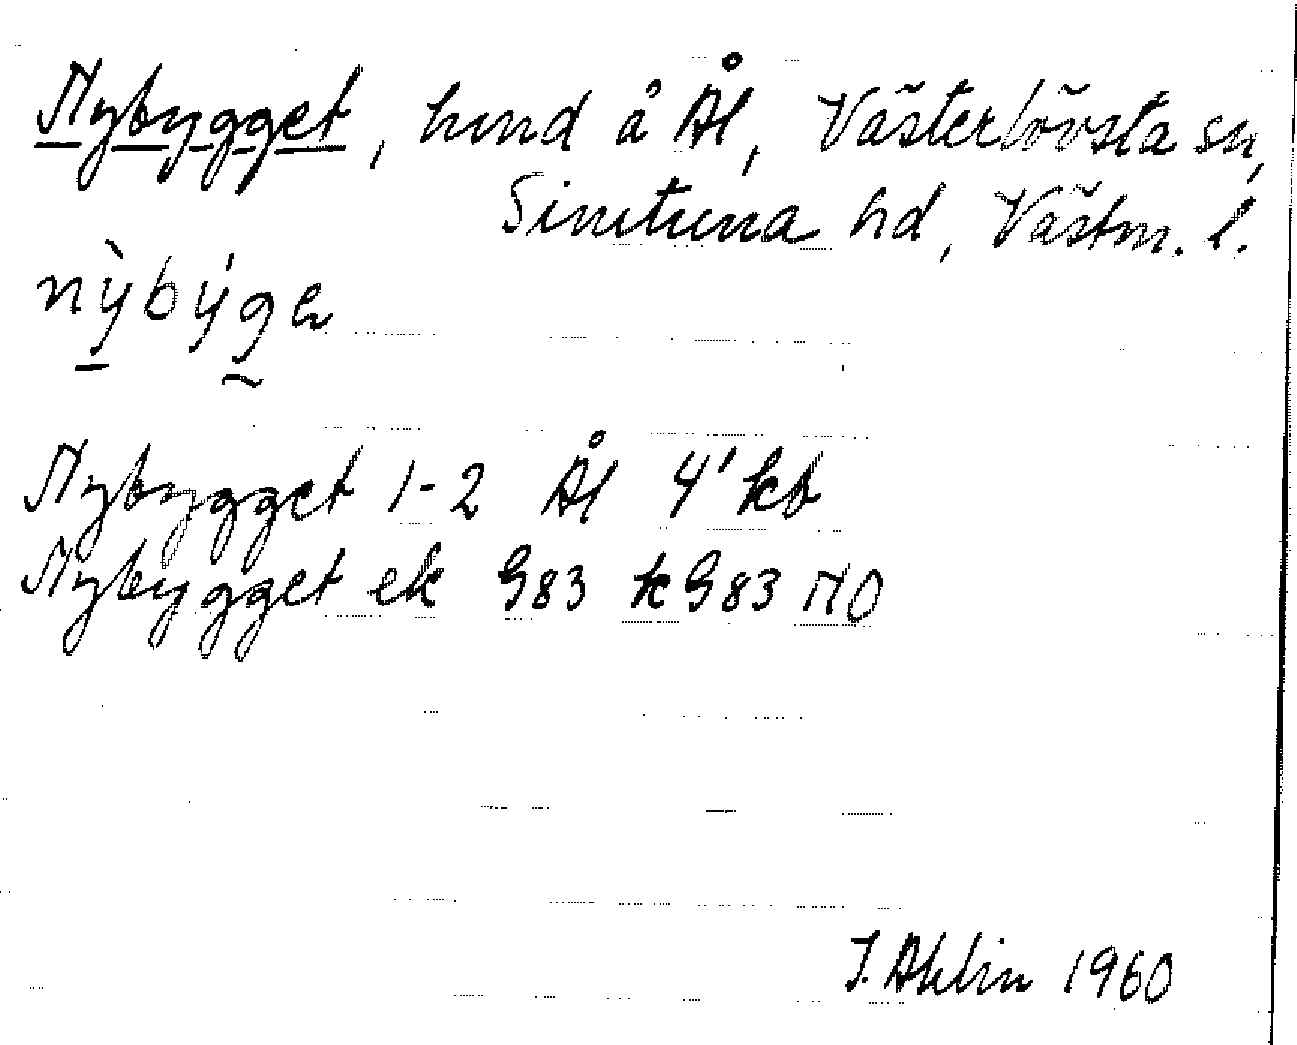 Nybygget, hmnd å Ål, Västerlövsta sn,
Simtuna hd, Västm. l.
nỳbýge
Nybygget 1-2 Ål 4' kb
Nybygget ek G83 k G83 NO
J. Ahlin 1960